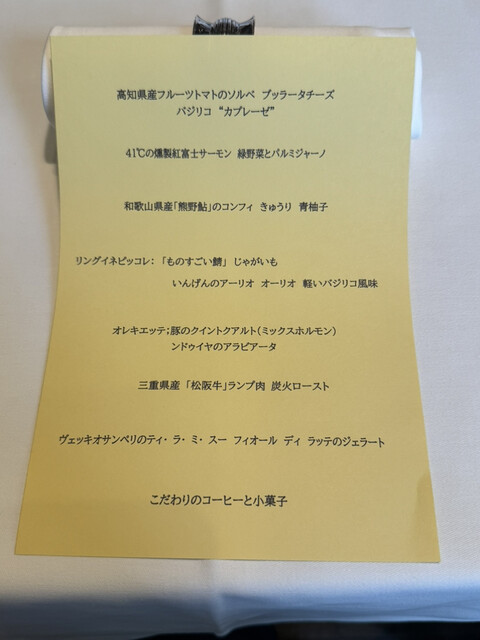 高知県産フルーツトマトのソルベ ブッラータチーズ
バジリコ “カプレーゼ”
41℃の燻製紅富士サーモン 緑野菜とパルミジャーノ
和歌山県産「熊野鮎」のコンフィ きゅうり 青柚子
リングイネピッコレ: 「ものすごい鯖」 じゃがいも
いんげんのアーリオ オーリオ 軽いバジリコ風味
オレキエッテ;豚のクイントクアルト(ミックスホルモン)
ンドゥイヤのアラビアータ
三重県産 「松阪牛」ランプ肉 炭火ロースト
ヴェッキオサンペリのティ・ラ・ミ・スー フィオール ディ ラッテのジェラート
こだわりのコーヒーと小菓子